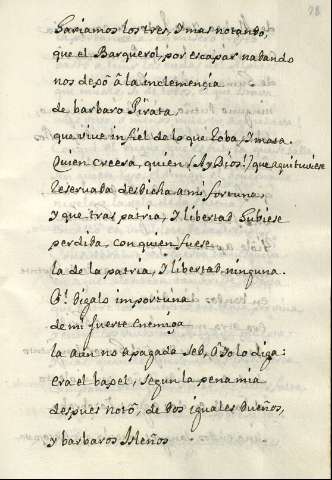 28
Gariamos los tres, y mas notando,
que el Barquerol, por escapar nadando
nos dexò â la inclemençia
de barbaro Pirata,
que vive infiel de lo que Roba, y mata.
Quien creera, quien (Ay Dios!) que aqui tuviese
reservada desdicha a mi fortuna,
y que tras patria, y libertad hubiese
perdida, con quien fuese
la de la patria, y libertad ninguna.
O! digalo importuna
de mi fuerte enemiga
la aun no apagada sed, ô yo lo diga:
era el baxel, segun la pena mia
despues notò, de dos iguales dueños,
y barbaros Isleños